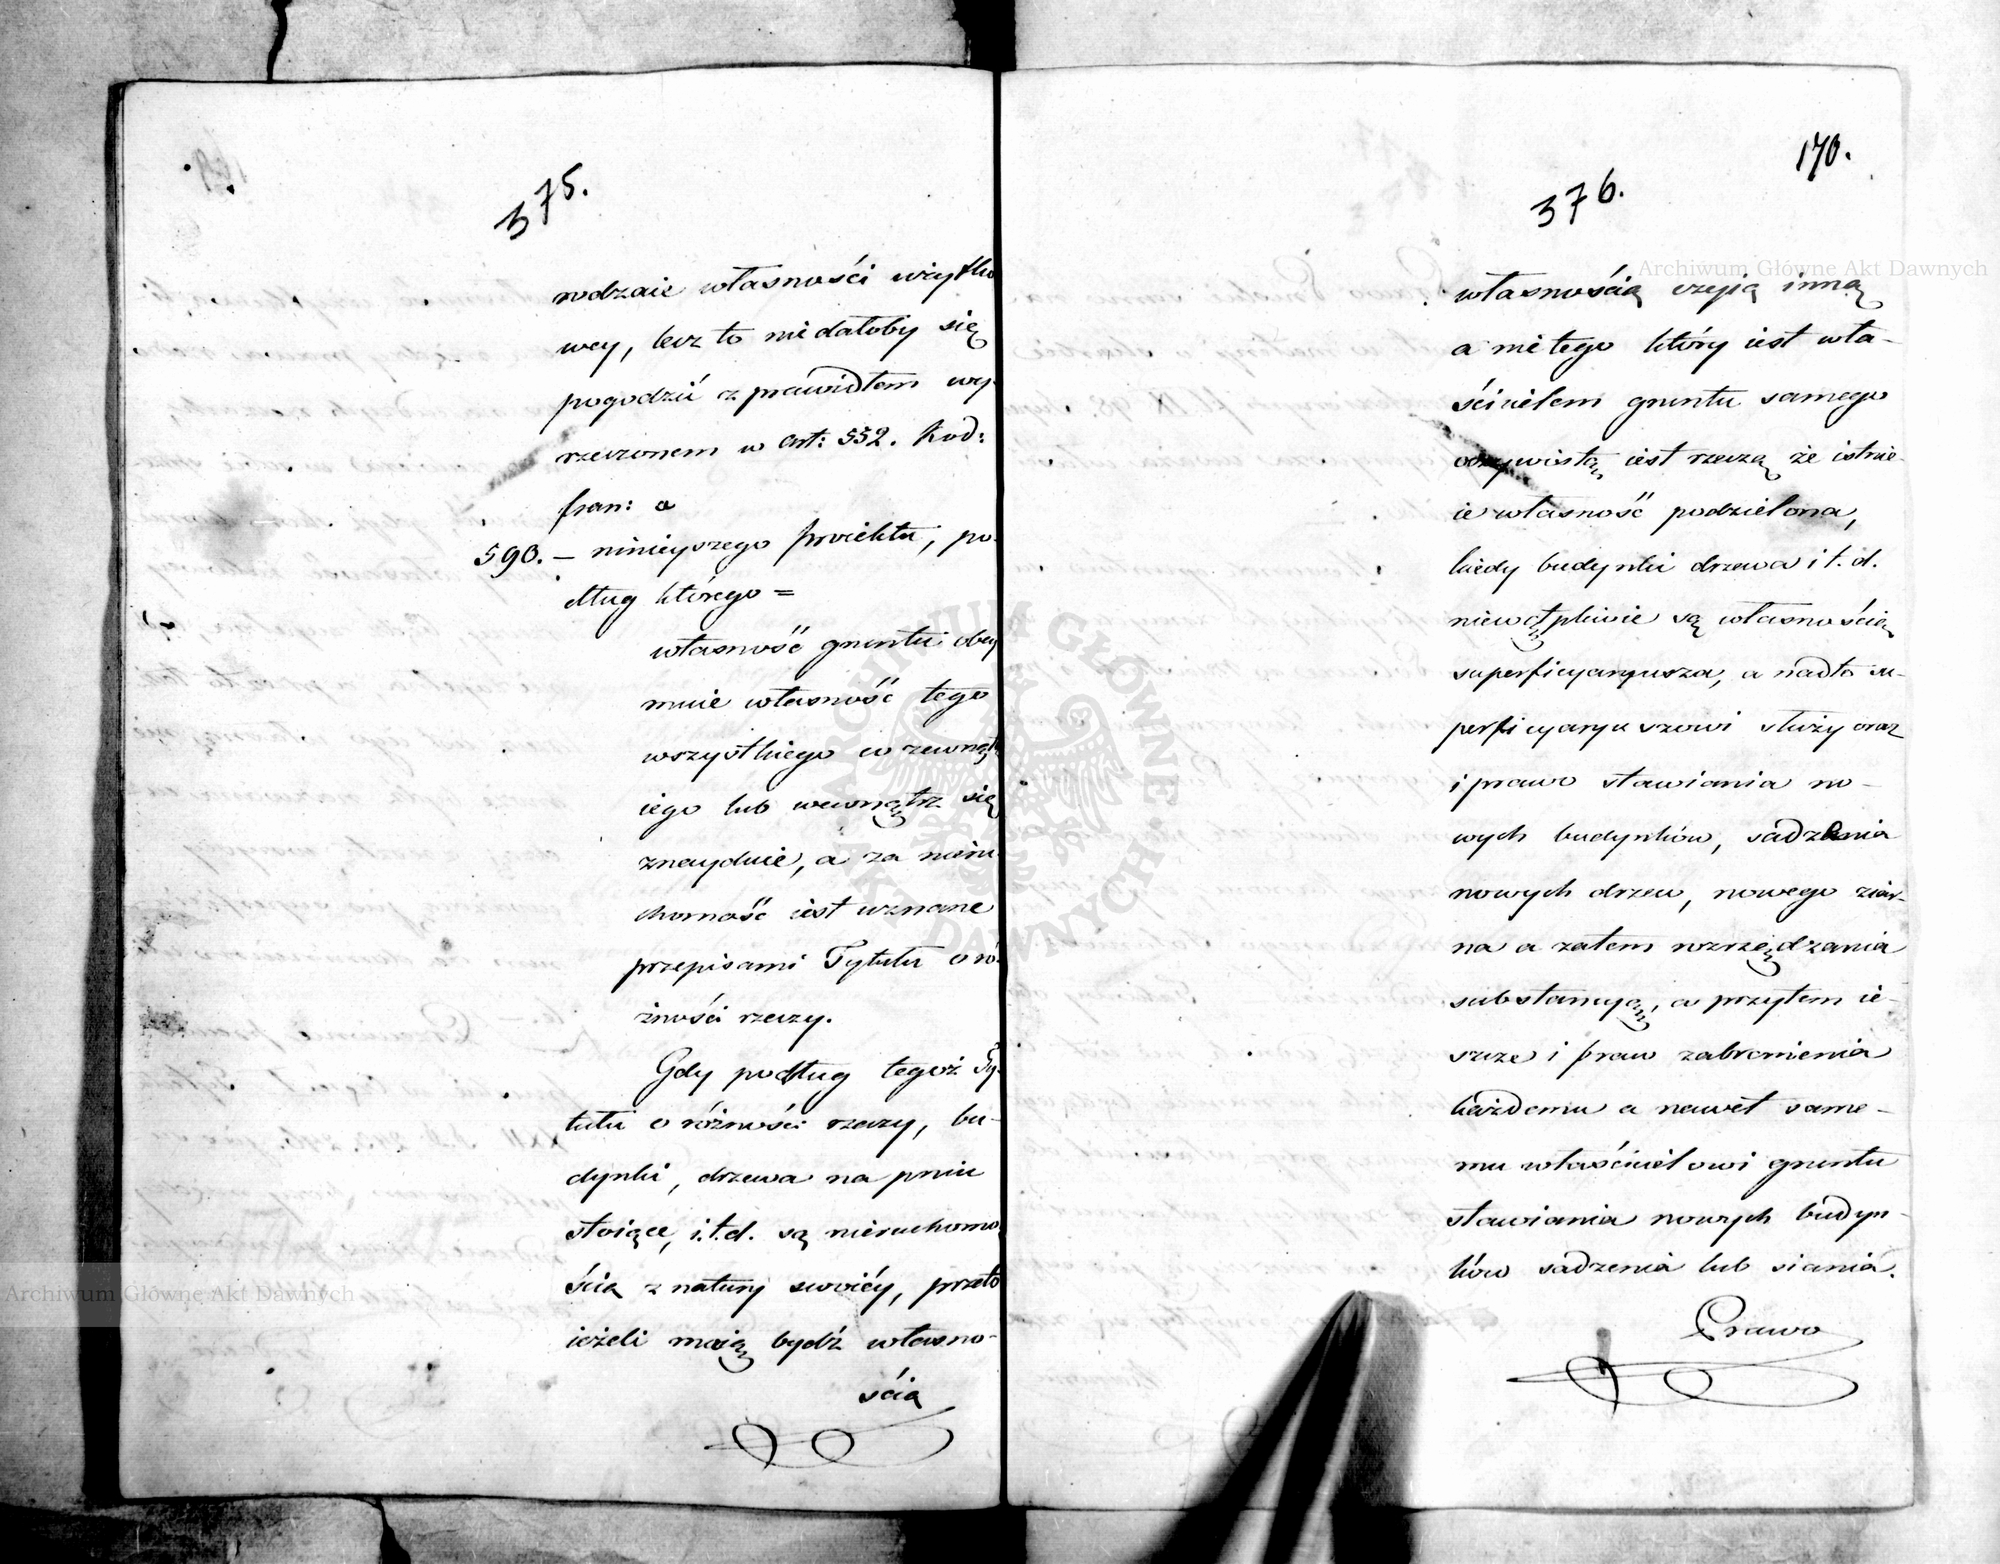 375.
rodzaie własności użytko
wey, lecz to niedałoby się
pogodzić z prawidłem wy
rzeczonem w art: 552. Kod:
fran: a
590. — ninieyszego proiektu, po
dług którego =
własność gruntu obey
muie własność tego
wszystkiego co zewnątrz
iego lub wewnątrz się
znayduie, a za nieru
chomość iest uznane
przepisami Tytułu o ró
żności rzeczy.
Gdy podług tegoż Ty
tułu o różności rzeczy, bu-
dynki, drzewa na pniu
stoiące, i.t.d. są nieruchomo
ścią z natury swoiéy, przeto
ieżeli maią bydź własno-
ścią
170.
376.
własnością czyią inną
a nie tego który iest wła-
ścicielem gruntu samego
oczywistą iest rzeczą że istnie
ie własność podzielona,
kiedy budynki drzewa i t. d.
niewątpliwie są własnością
superficyaryusza, a nadto su-
perficyaryuszowi służy oraz
i prawo stawiania no-
wych budynków, sadzenia
nowych drzew, nowego ziar-
na a zatem rozrządzania
substancyą, a przytem ie-
szcze i praw zabronienia
każdemu a nawet same-
mu właścicielowi gruntu
stawiania nowych budyn-
ków sadzenia lub siania.
Prawo
Archiwum Główne Akt Dawnych
Archiwum Główne Akt Dawnych
ARCHIWUM GŁÓWNE AKT DAWNYCH